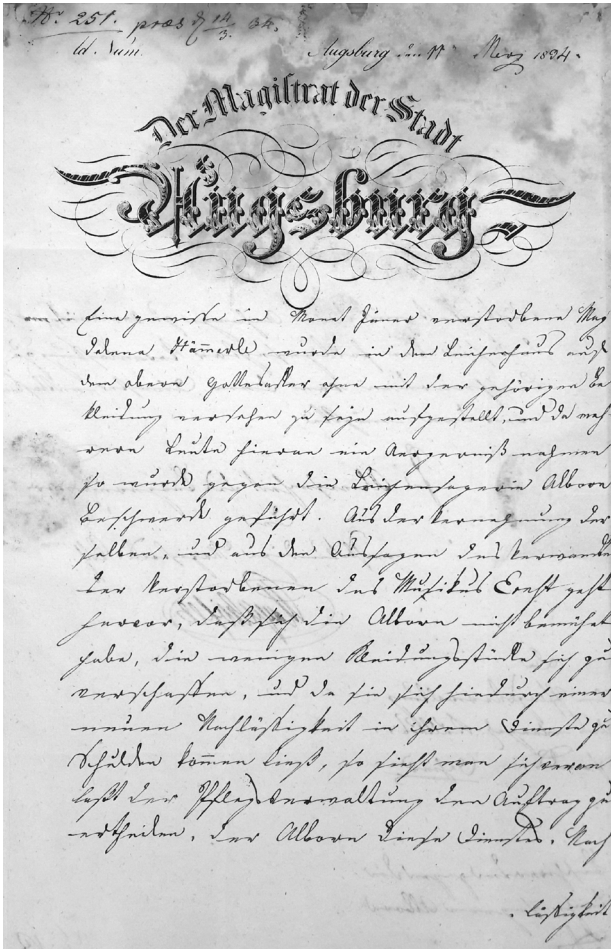 Nr. 251. præs d 14/3. 34.
ad Num. Augsburg den 11 März 1834.
Der Magistrat der Stadt
Augsburg
Eine gewisse im Monat Jäner verstorbene Mag
dalena Hämmerle wurde in dem Leichenhaus auf
dem obern Gottesaker ohne mit der gehörigen Be
kleidung versehen zu seyn ausgestellt, und da meh
rere Leute hieran ein Aergerniß nahmen
so wurde gegen die Leichensagerin Alborn
Beschwerde geführt. Aus der Vernehmung der
selben, und aus den Aussagen des Verwandten
der Verstorbenen des Musikus Ernst geht
hervor, daß sich die Alborn nicht bemühet
habe, die wenigen Kleidungsstücke sich zu
verschaffen, und da sie sich hiedurch einer
neuen Nachläßigkeit in ihrem Dienste zu
Schulden kommen ließ, so sieht man sich veran
laßt der Pflegsverwaltung den Auftrag zu
ertheilen, der Alborn diese Dienstes-Nach
läßigkeit